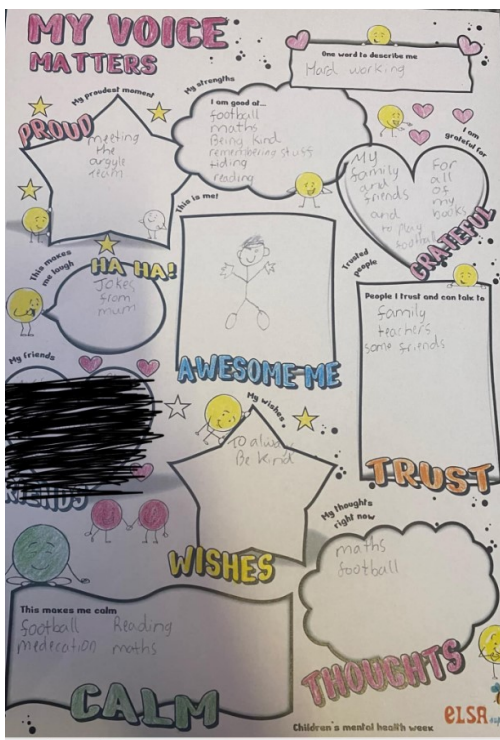 MY VOICE
MATTERS
One word to describe me
Hard working
My proudest moment
PROUD
meeting
the
argyle
team
My strengths
I am good at...
football
maths
Being kind
remembering stuff
tiding
reading
I am
grateful for
My
family
and
friends
and
to play
football
for
all
of
my
books
GRATEFUL
This makes
me laugh
HA HA!
Jokes
from
mum
This is me!
AWESOME ME
Trusted
people
People I trust and can talk to
family
teachers
some friends
TRUST
My friends
My wishes
To always
Be kind
WISHES
My thoughts
right now
maths
football
THOUGHTS
This makes me calm
football Reading
medecation maths
CALM
Children's mental health week
ELSA